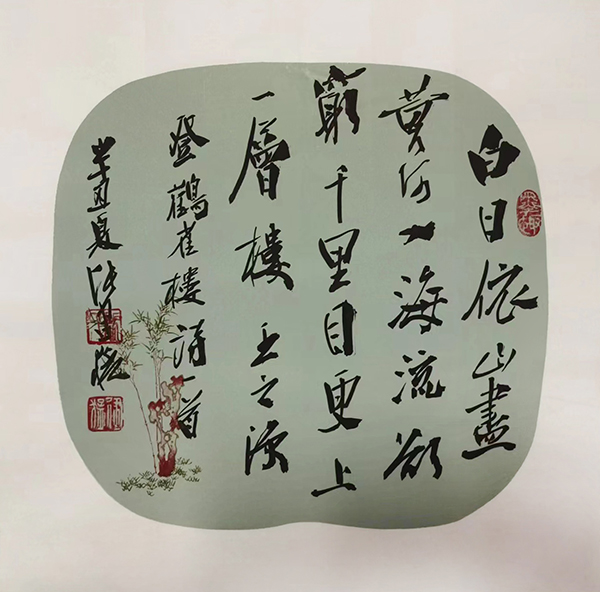 白日依山盡
黄河入海流欲
窮千里目更上
一層樓 王之渙
登鸛雀樓詩一首
辛丑夏 张